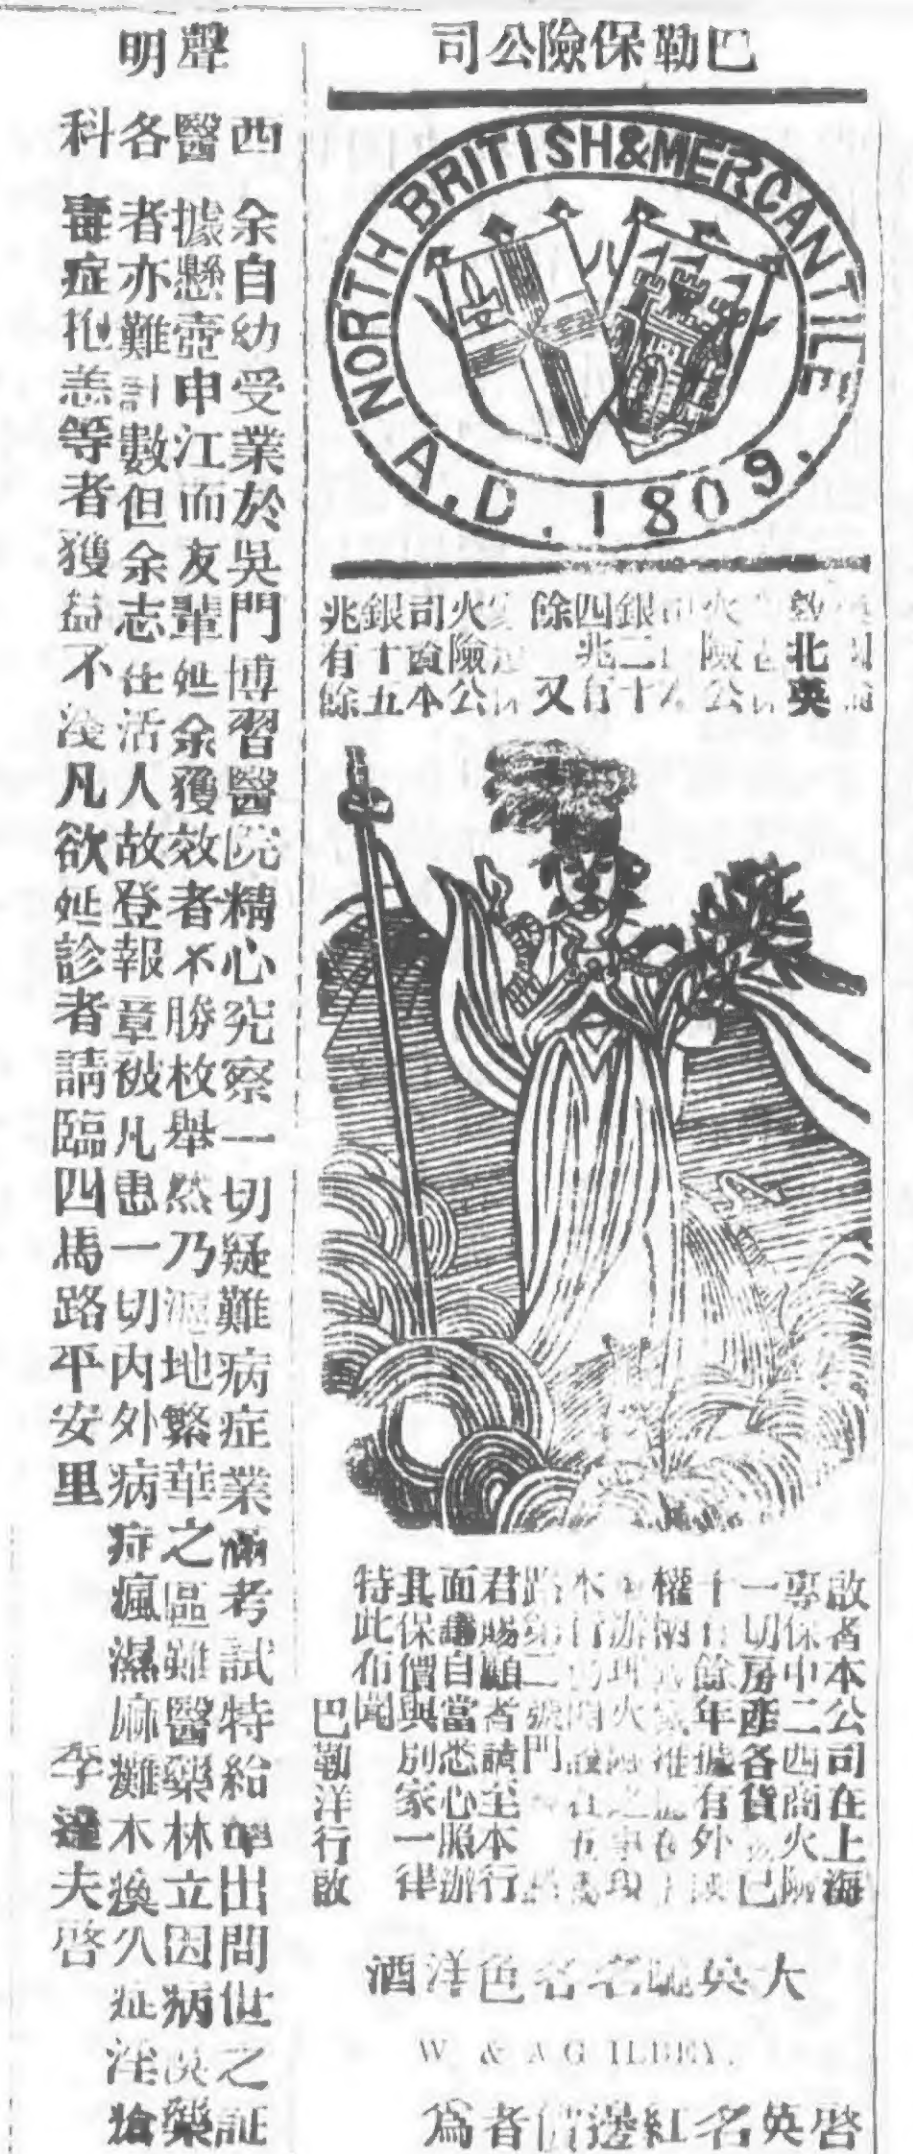 巴勒保險公司
NORTH BRITISH & MERCANTILE
A.D. 1809.
北英
火險公
銀二十
四兆有
餘 又
火險公
司資本
銀十五
兆有餘
啟者本公司在上海
專保中二西商火險
一切房產各貨已
十有餘年據有外
權
辦理火險之事現
路第二號門
君賜顧者請至本行
面議自當悉心照辦
其保價與別家一律
特此布聞
巴勒洋行啟
大英 名各色洋酒
W. & A GILBEY.
啓英名紅邊 者為
聲明
西醫各科
余自幼受業於吳門博習醫院精心究察一切疑難病症業滿考試特給單出問世之証
據懸壺申江而友輩延余獲效者不勝枚舉然乃滬地繁華之區雖醫藥林立因病 藥
者亦難計數但余志在活人故登報章被凡患一切內外病症瘋濕麻癱木瘓久症淫瘡
毒症抱恙等者獲益不淺凡欲延診者請臨四馬路平安里
李達夫啓